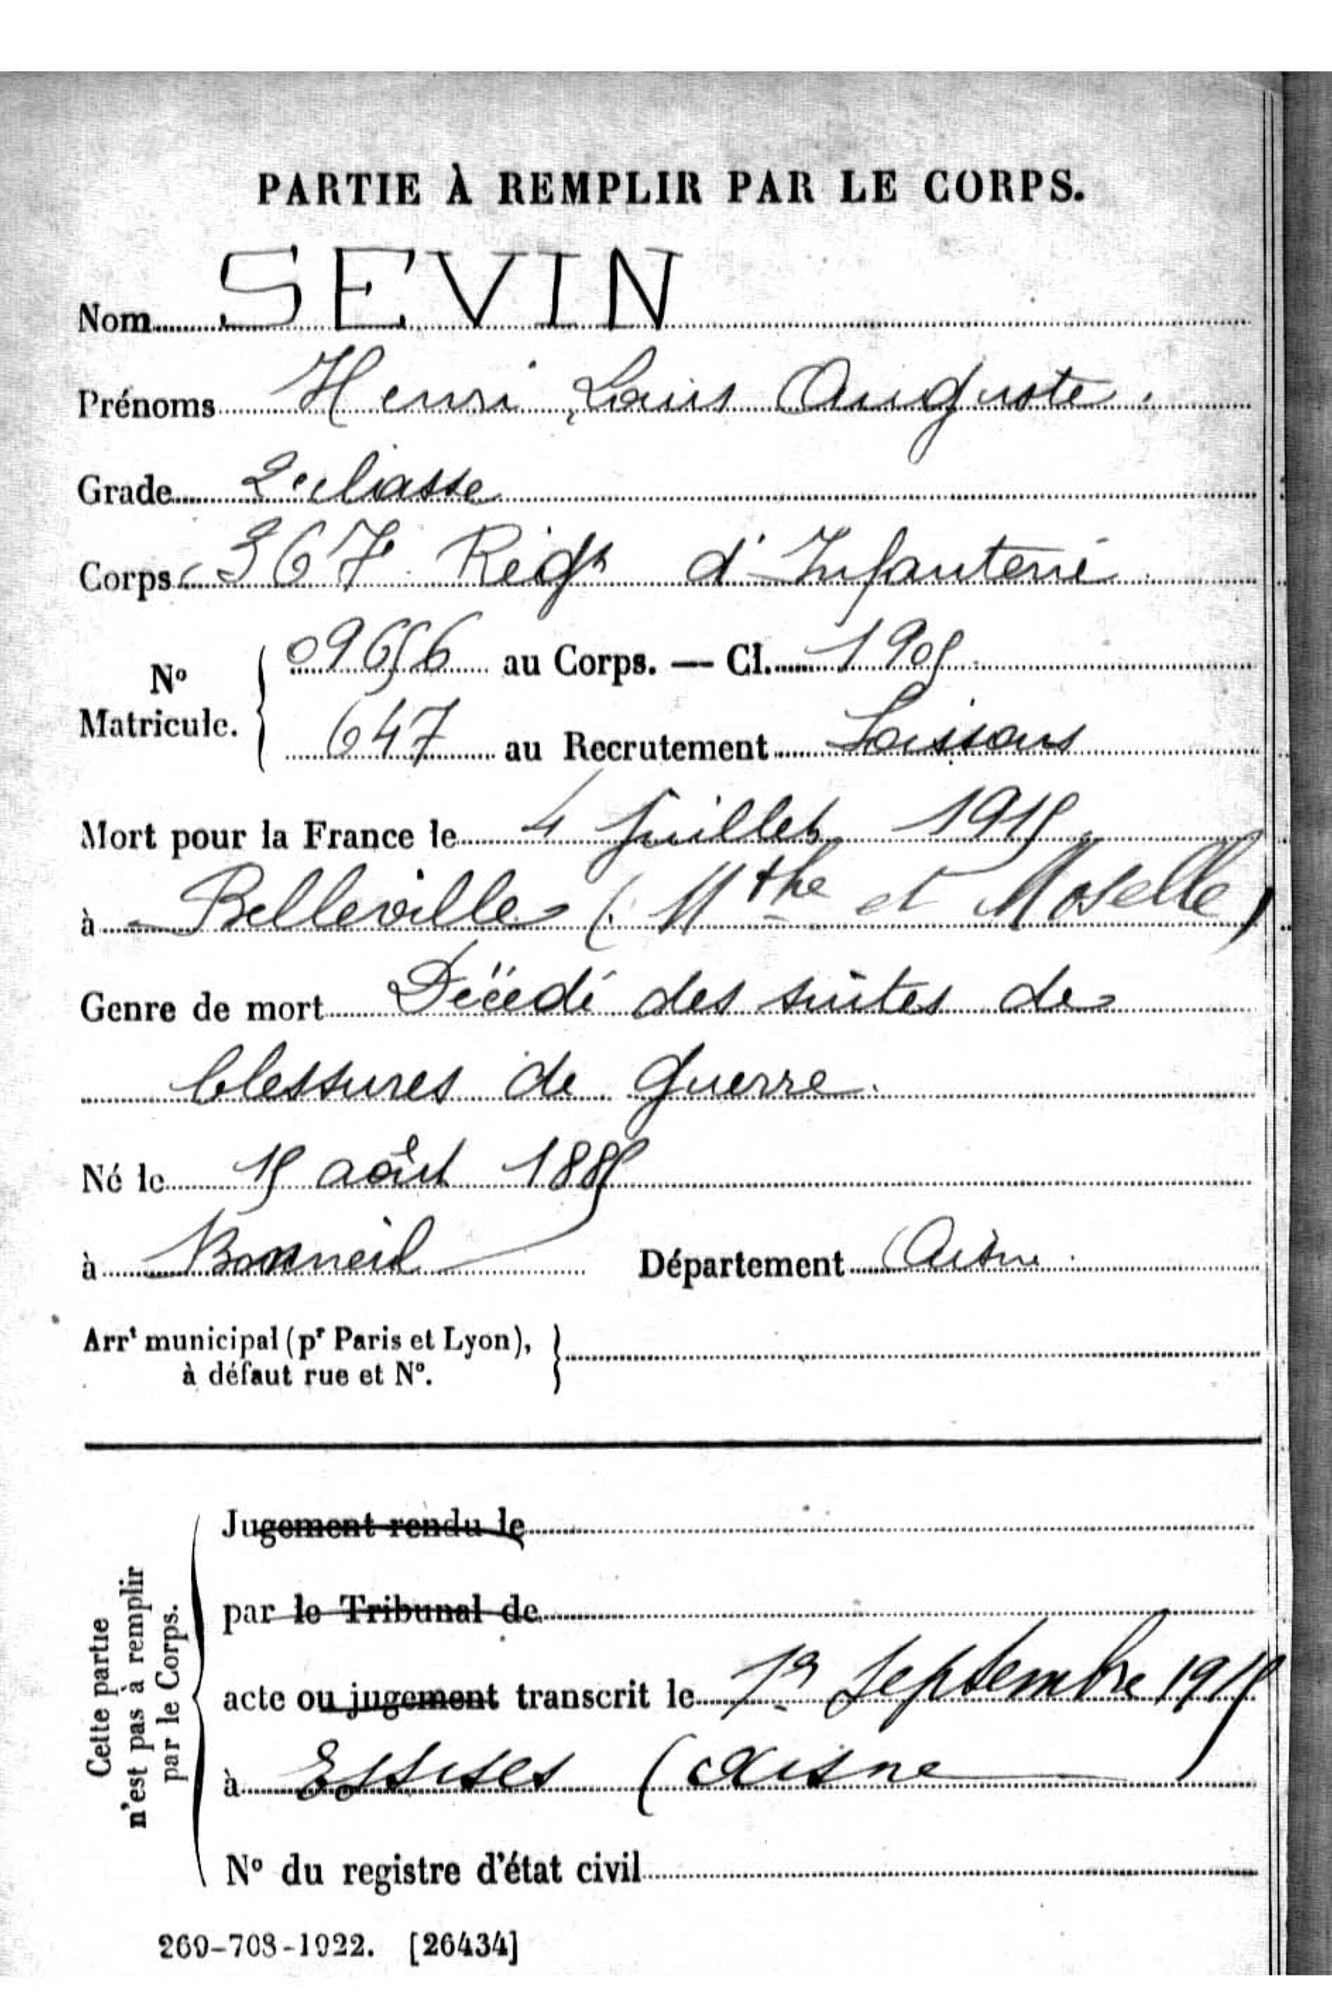 PARTIE À REMPLIR PAR LE CORPS.
Nom SEVIN
Prénoms Henri Louis Auguste.
Grade 2e classe
Corps 367e Regt d'Infanterie
No Matricule. 09656 au Corps. — Cl. 1905
647 au Recrutement Soissons
Mort pour la France le 4 Juillet 1915
à Belleville (Mthe et Moselle)
Genre de mort Décédé des suites de
blessures de guerre.
Né le 15 août 1885
à Bonneil Département Aisne.
Arrt municipal (pr Paris et Lyon),
à défaut rue et No.
Cette partie
n'est pas à remplir
par le Corps.
Jugement rendu le
par le Tribunal de
acte ou jugement transcrit le 1er Septembre 1915
à Essises (Aisne
No du registre d'état civil
269-708-1922. [26434]